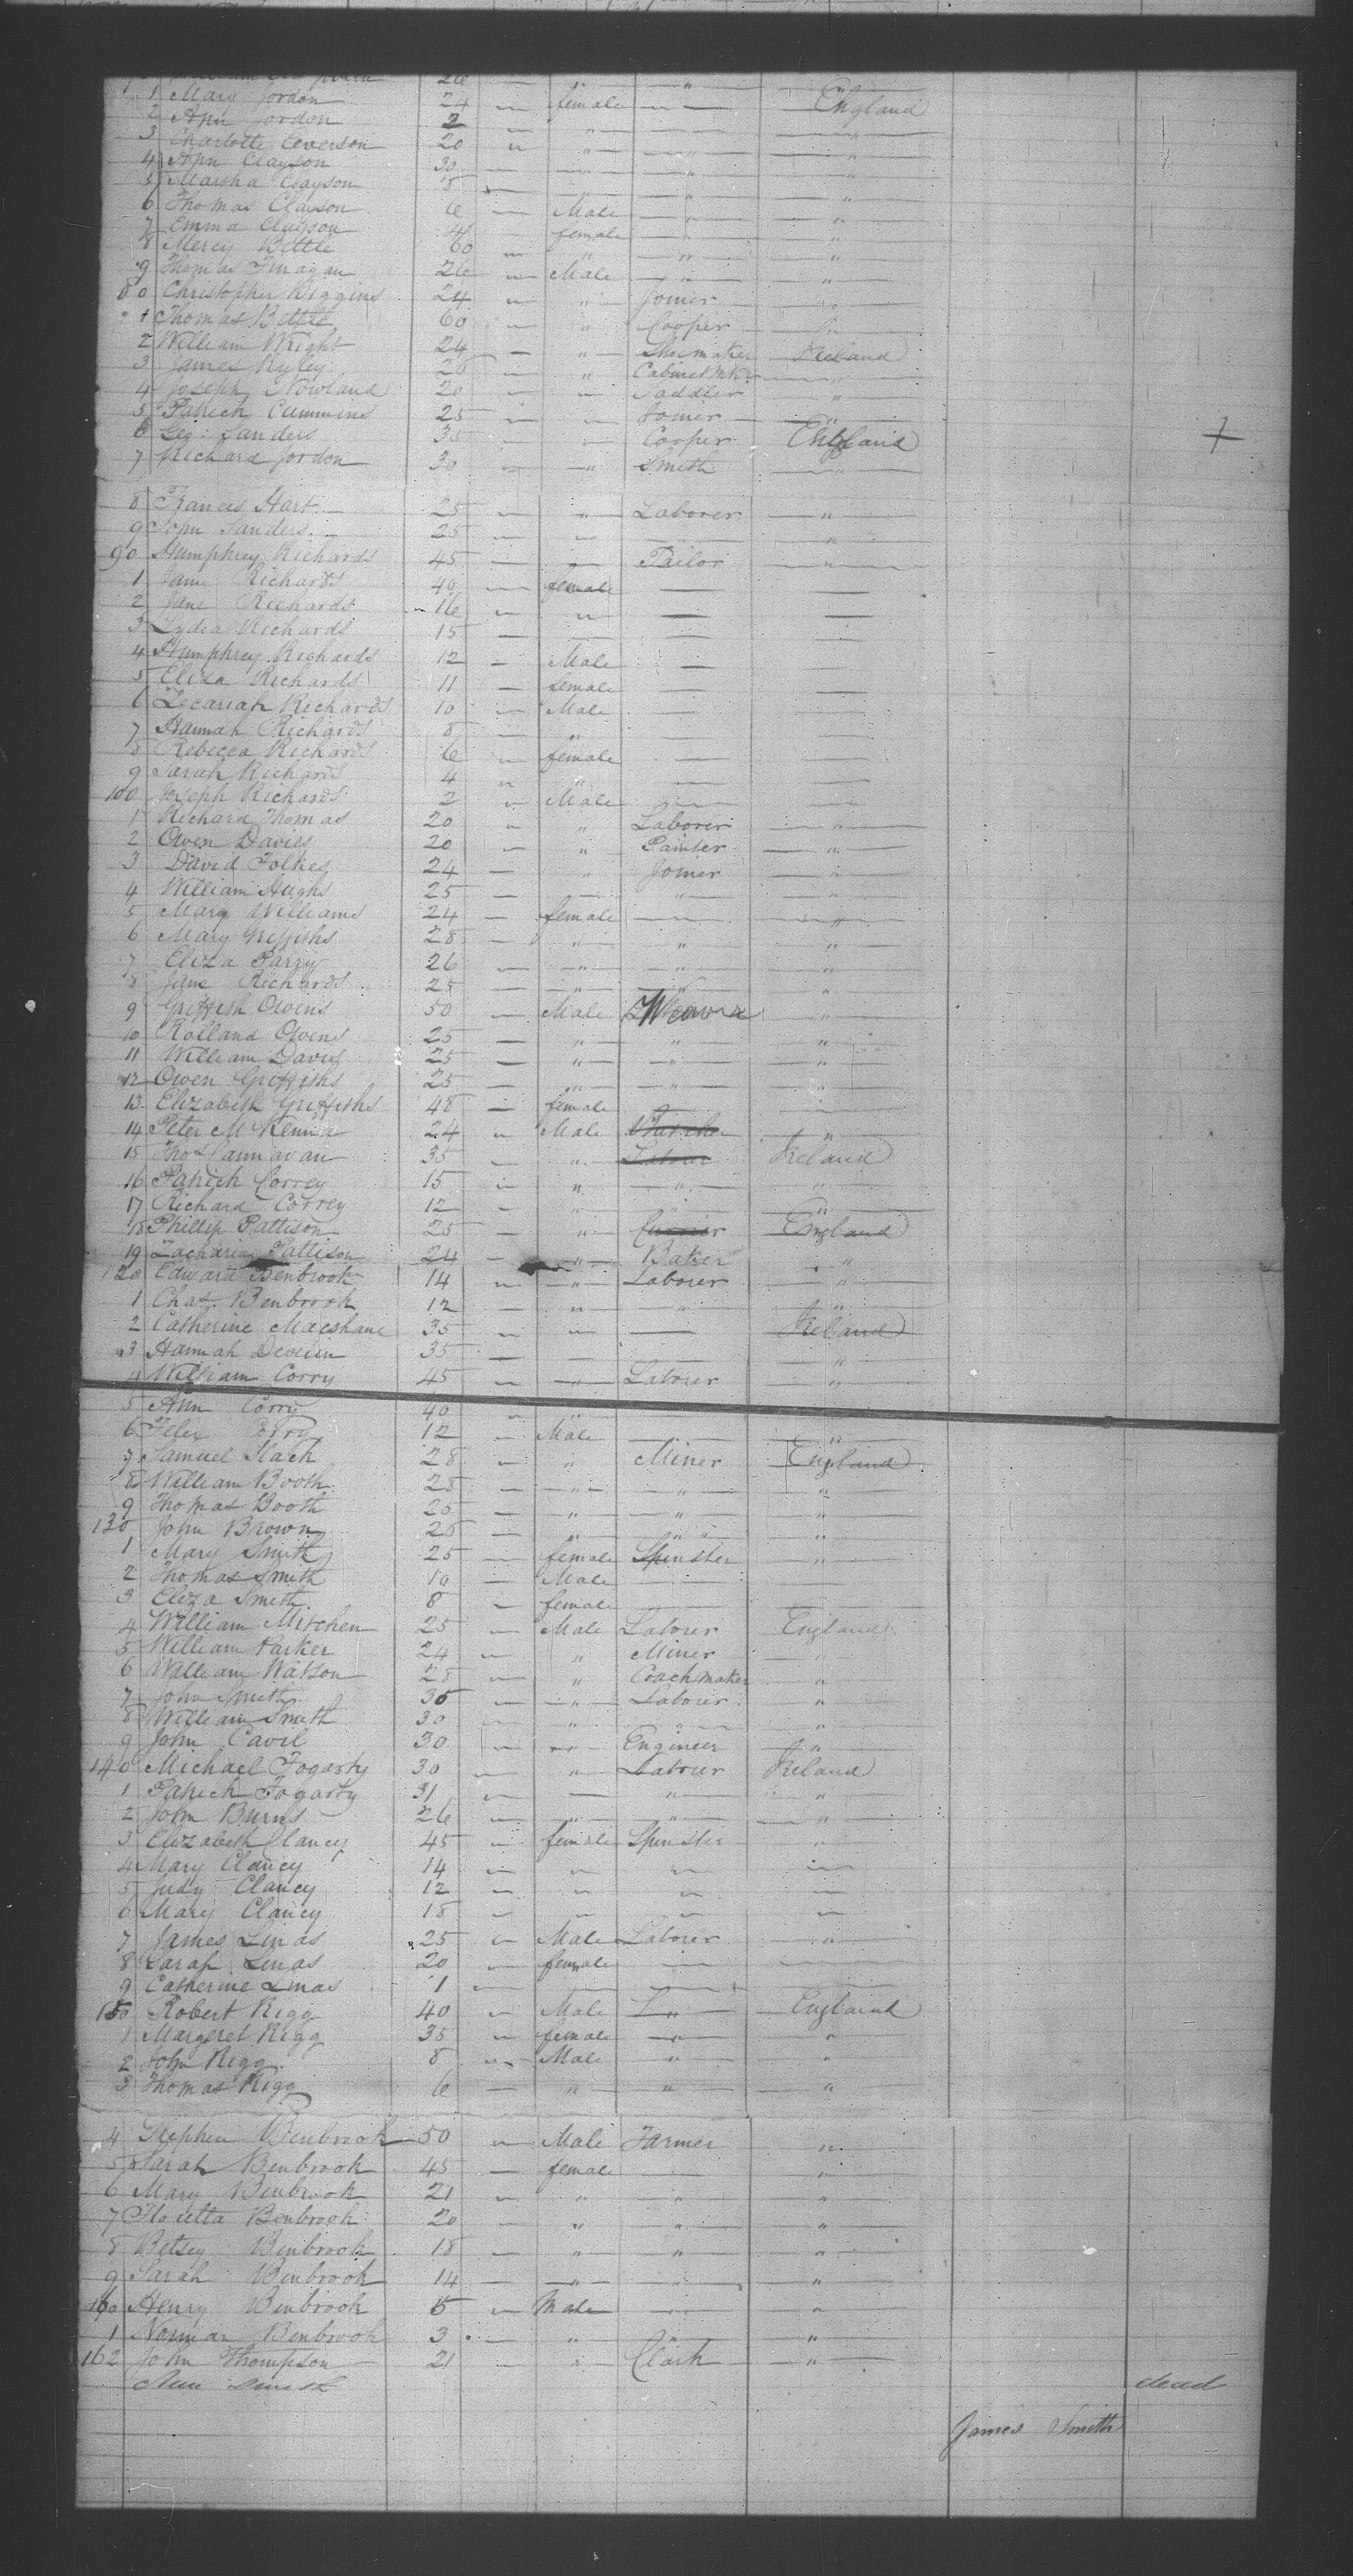 1 Mary Jordon 24 " female " England
2 Ann Jordon 2 " " " "
3 Charlotte Leverson 20 " " " "
4 Ann Clayson 30 " " " "
5 Martha Clayson 8 " " " "
6 Thomas Clayson 6 " Male " "
7 Emma Clayson 4 " female " "
8 Mercy Bettle 60 " " " "
9 Thomas Finagan 26 " Male " "
80 Christopher Higgins 24 " " Joiner "
1 Thomas Bettle 60 " " Cooper "
2 William Wright 24 " " Shoemaker Ireland
3 James Ryley 28 " " Cabinetmkr "
4 Joseph Nowland 20 " " Saddler "
5 Patrick Cummins 25 " " Joiner "
6 Geo: Sanders 35 " " Cooper England +
7 Richard Jordon 30 " " Smith "
8 Frances Hart 25 " " Laborer "
9 John Sanders 25 " " "
90 Humphrey Richards 45 — — Tailor "
1 Jane Richards 40 " female — —
2 Jane Richards 16 " " — —
3 Lydia Richards 15 — — — —
4 Humphrey Richards 12 — Male — —
5 Eliza Richards 11 — female — —
6 Zecariah Richards 10 — Male — —
7 Hannah Richards 8 — " — —
8 Rebecca Richards 6 " female — —
9 Sarah Richards 4 " " — —
100 Joseph Richards 2 " Male — —
1 Richard Thomas 20 " " Laborer "
2 Owen Davies 20 — " Painter "
3 David Folkes 24 — " Joiner "
4 William Hughs 25 — — " "
5 Mary Williams 24 — female — "
6 Mary Griffiths 28 — " " "
7 Eliza Parry 26 — " " "
8 Jane Richards 25 — " " "
9 Griffith Owens 50 — Male "
10 Rolland Owens 25 — " " "
11 William Davis 25 — " " "
12 Owen Griffiths 25 — " " "
13 Elizabeth Griffiths 48 — female — "
14 Peter McKenna 24 " Male Butcher "
15 Thos Cannavan 35 " " Laborer Ireland
16 Patrick Correy 15 " " " "
17 Richard Correy 12 — " " "
18 Phillip Pattison 25 — " Currier England
19 Zacharia Pattison 24 — " Baker "
120 Edward Benbrook 14 " " Laborer "
1 Chas. Benbrook 12 — " " "
2 Catherine Macshane 35 " " — Ireland
3 Hannah Deveren 35 — — — "
4 William Corry 45 " " Laborer "
5 Ann Corry 40 " " — —
6 Felix Corry 12 " Male — "
7 Samuel Slack 28 " " Miner England
8 William Booth 28 — " " "
9 Thomas Booth 25 — " " "
130 John Brown 25 — " " "
1 Mary Smith 25 — female Spinster "
2 Thomas Smith 10 — Male — —
3 Eliza Smith 8 — female — —
4 William Mitchen 25 — Male Laborer England
5 William Parker 24 " " Miner "
6 William Watson 28 " " Coachmaker "
7 John Smith 35 " " Laborer "
8 William Smith 30 " " " "
9 John Cavil 30 " " Engineer "
140 Michael Fogarty 30 — " Laborer Ireland
1 Patrick Fogarty 31 " — " "
2 John Burns 26 — " " "
3 Elizabeth Clancy 45 — female Spinster "
4 Mary Clancy 14 " " " "
5 Judy Clancy 12 " " " "
6 Mary Clancy 18 " " " "
7 James Linas 25 " Male Laborer "
8 Sarah Linas 20 " female — —
9 Catherine Linas 1 — — — —
150 Robert Rigg 40 " Male L " England
1 Margeret Rigg 35 " female " "
2 John Rigg 8 " Male " "
3 Thomas Rigg 6 — " " "
4 Stephen Benbrook 50 " Male Farmer "
5 Sarah Benbrook 45 — female — "
6 Mary Benbrook 21 " " " "
7 Floretta Benbrook 20 — " " "
8 Betsey Benbrook 18 — " " "
9 Sarah Benbrook 14 — " — "
160 Henry Benbrook 5 " Male — "
1 Norman Benbrook 3 — " " "
162 John Thompson 21 — " Clark "
Ann Smith dead
James Smith